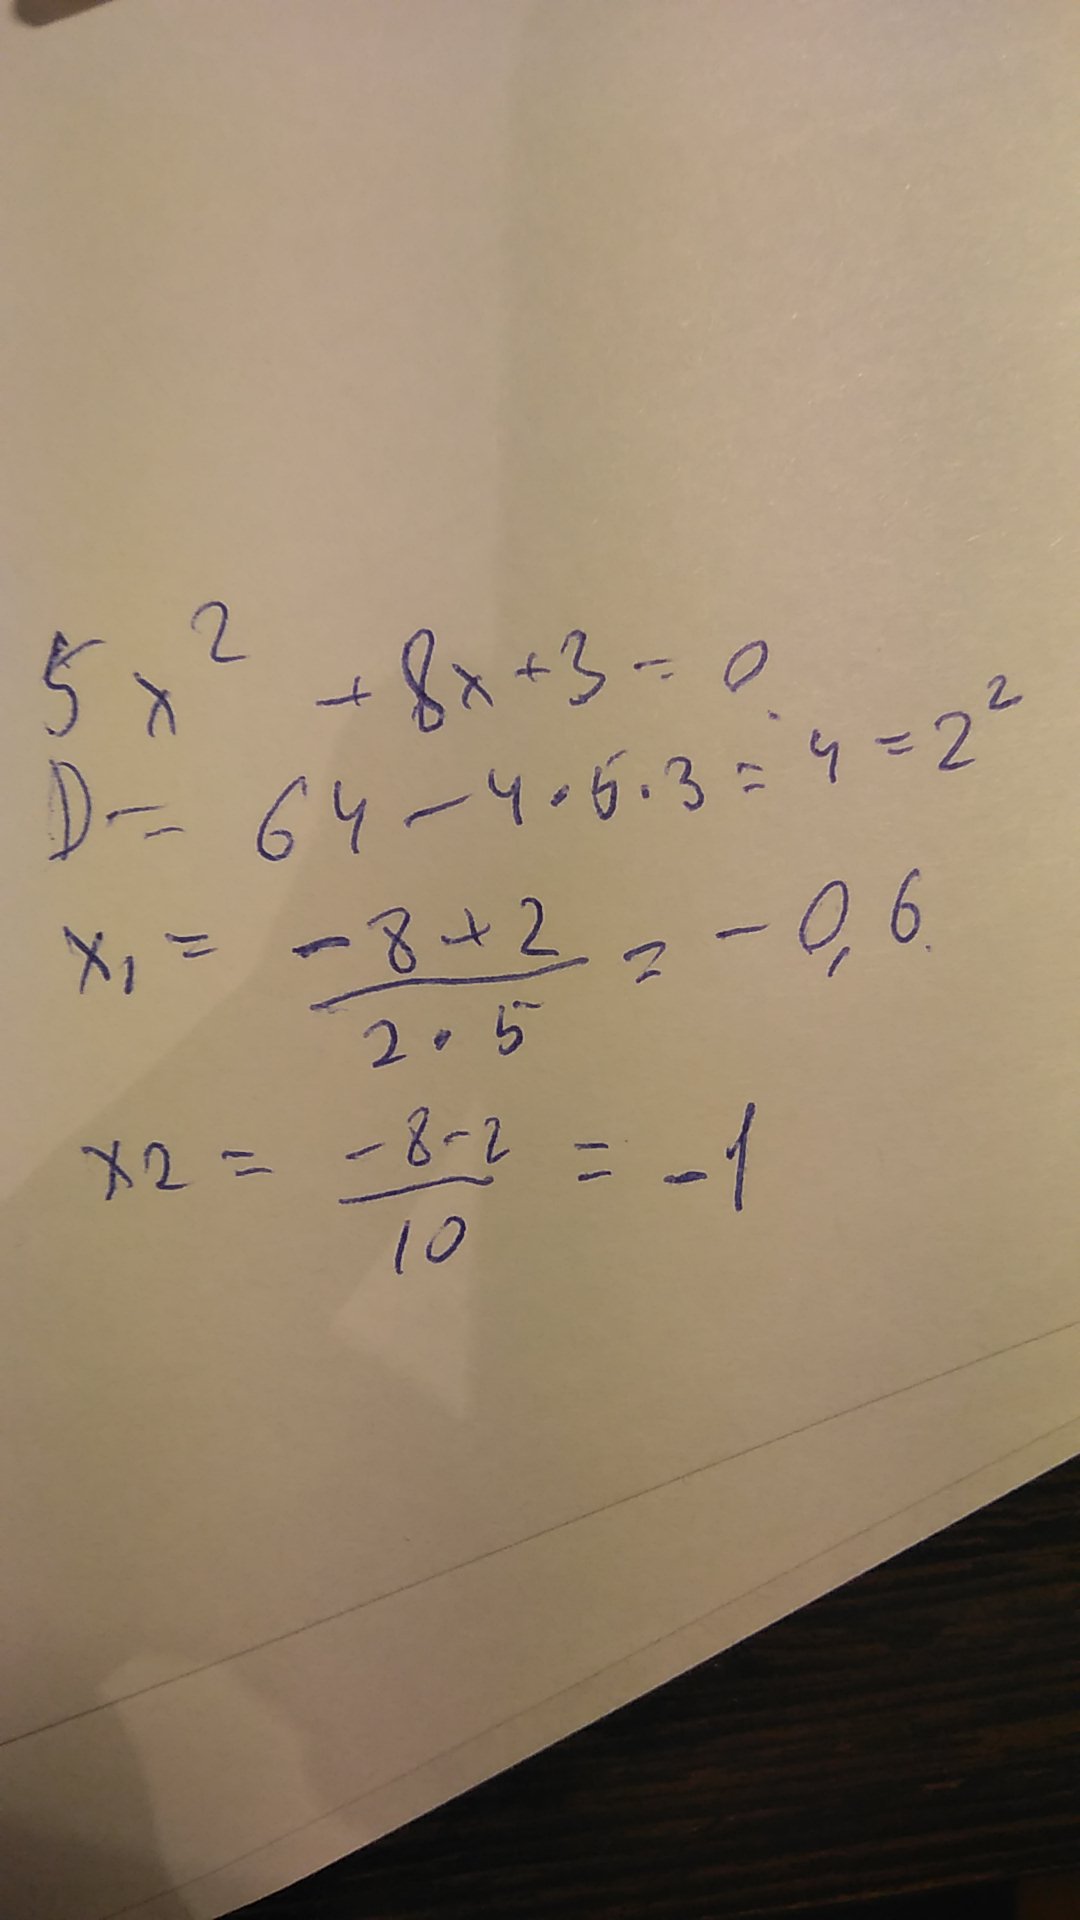 5x² + 8x + 3 = 0
D = 64 - 4 · 5 · 3 = 4 = 2²
x₁ = (-8 + 2)/(2 · 5) = -0,6
x2 = (-8 - 2)/10 = -1